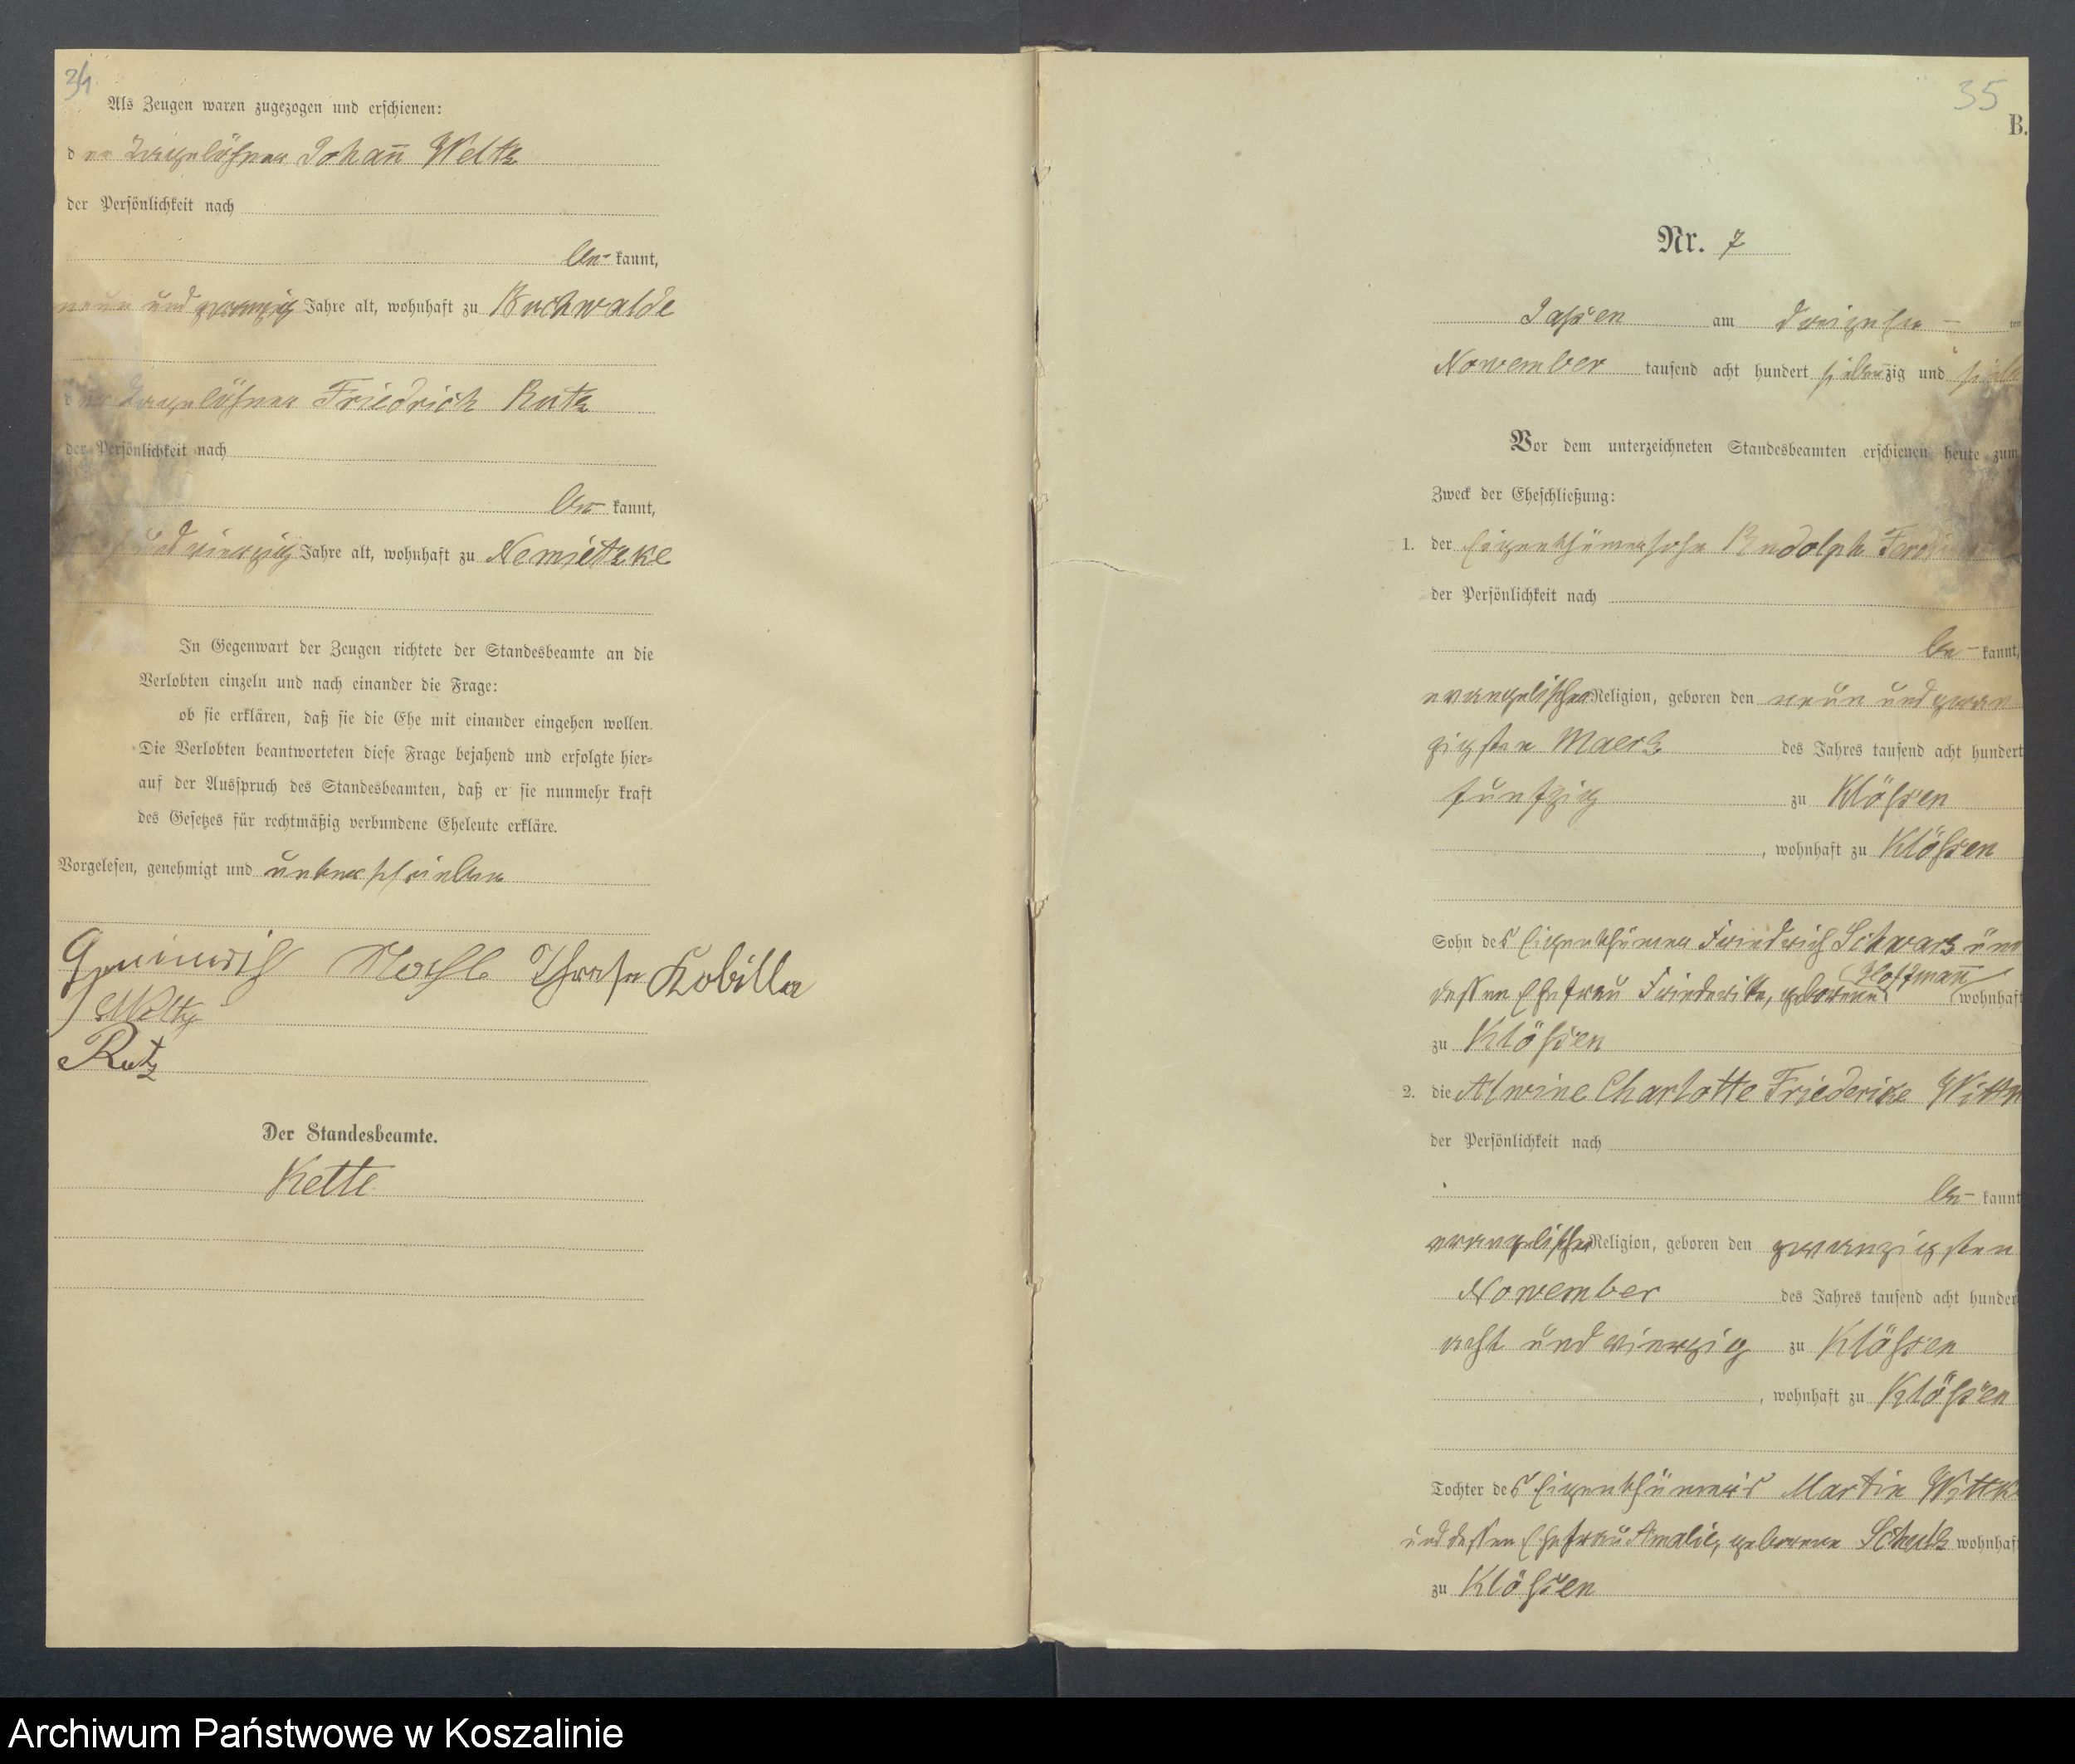 34
Als Zeugen waren zugezogen und erschienen:
der Tagelöhner Johann Weltz
der Persönlichkeit nach
be- kannt,
neun und zwanzig Jahre alt, wohnhaft zu Buchwalde
der Tagelöhner Friedrich Rutz
der Persönlichkeit nach
be- kannt,
und vierzig Jahre alt, wohnhaft zu Nemietzke
In Gegenwart der Zeugen richtete der Standesbeamte an die
Verlobten einzeln und nach einander die Frage:
ob sie erklären, daß sie die Ehe mit einander eingehen wollen.
Die Verlobten beantworteten diese Frage bejahend und erfolgte hier=
auf der Ausspruch des Standesbeamten, daß er sie nunmehr kraft
des Gesetzes für rechtmäßig verbundene Eheleute erkläre.
Vorgelesen, genehmigt und unterschrieben
Kobilla
Weltz
Rutz
Der Standesbeamte.
Kette
35
B.
Nr. 7
Jassen am dreizehn- ten
November tausend acht hundert siebenzig und sieben
Vor dem unterzeichneten Standesbeamten erschienen heute zum
Zweck der Eheschließung:
1. der Eigenthümersohn Rudolph Ferdin
der Persönlichkeit nach
be- kannt,
evangelischer Religion, geboren den neun und zwan-
zigsten Maerz des Jahres tausend acht hundert
funfzig zu Klößen
, wohnhaft zu Klößen
Sohn des Eigenthümer Friedrich Schwarz und
dessen Ehefrau Friederike, geborene Hoffmann wohnhaft
zu Klößen
2. die Alwine Charlotte Friederike Witt
der Persönlichkeit nach
be- kannt
evangelischer Religion, geboren den zwanzigsten
November des Jahres tausend acht hundert
acht und vierzig zu Klößen
, wohnhaft zu Klößen
Tochter des Eigenthümers Martin Wittk
und dessen Ehefrau Amalie, geborene Schulz wohnhaf
zu Klößen
Archiwum Państwowe w Koszalinie